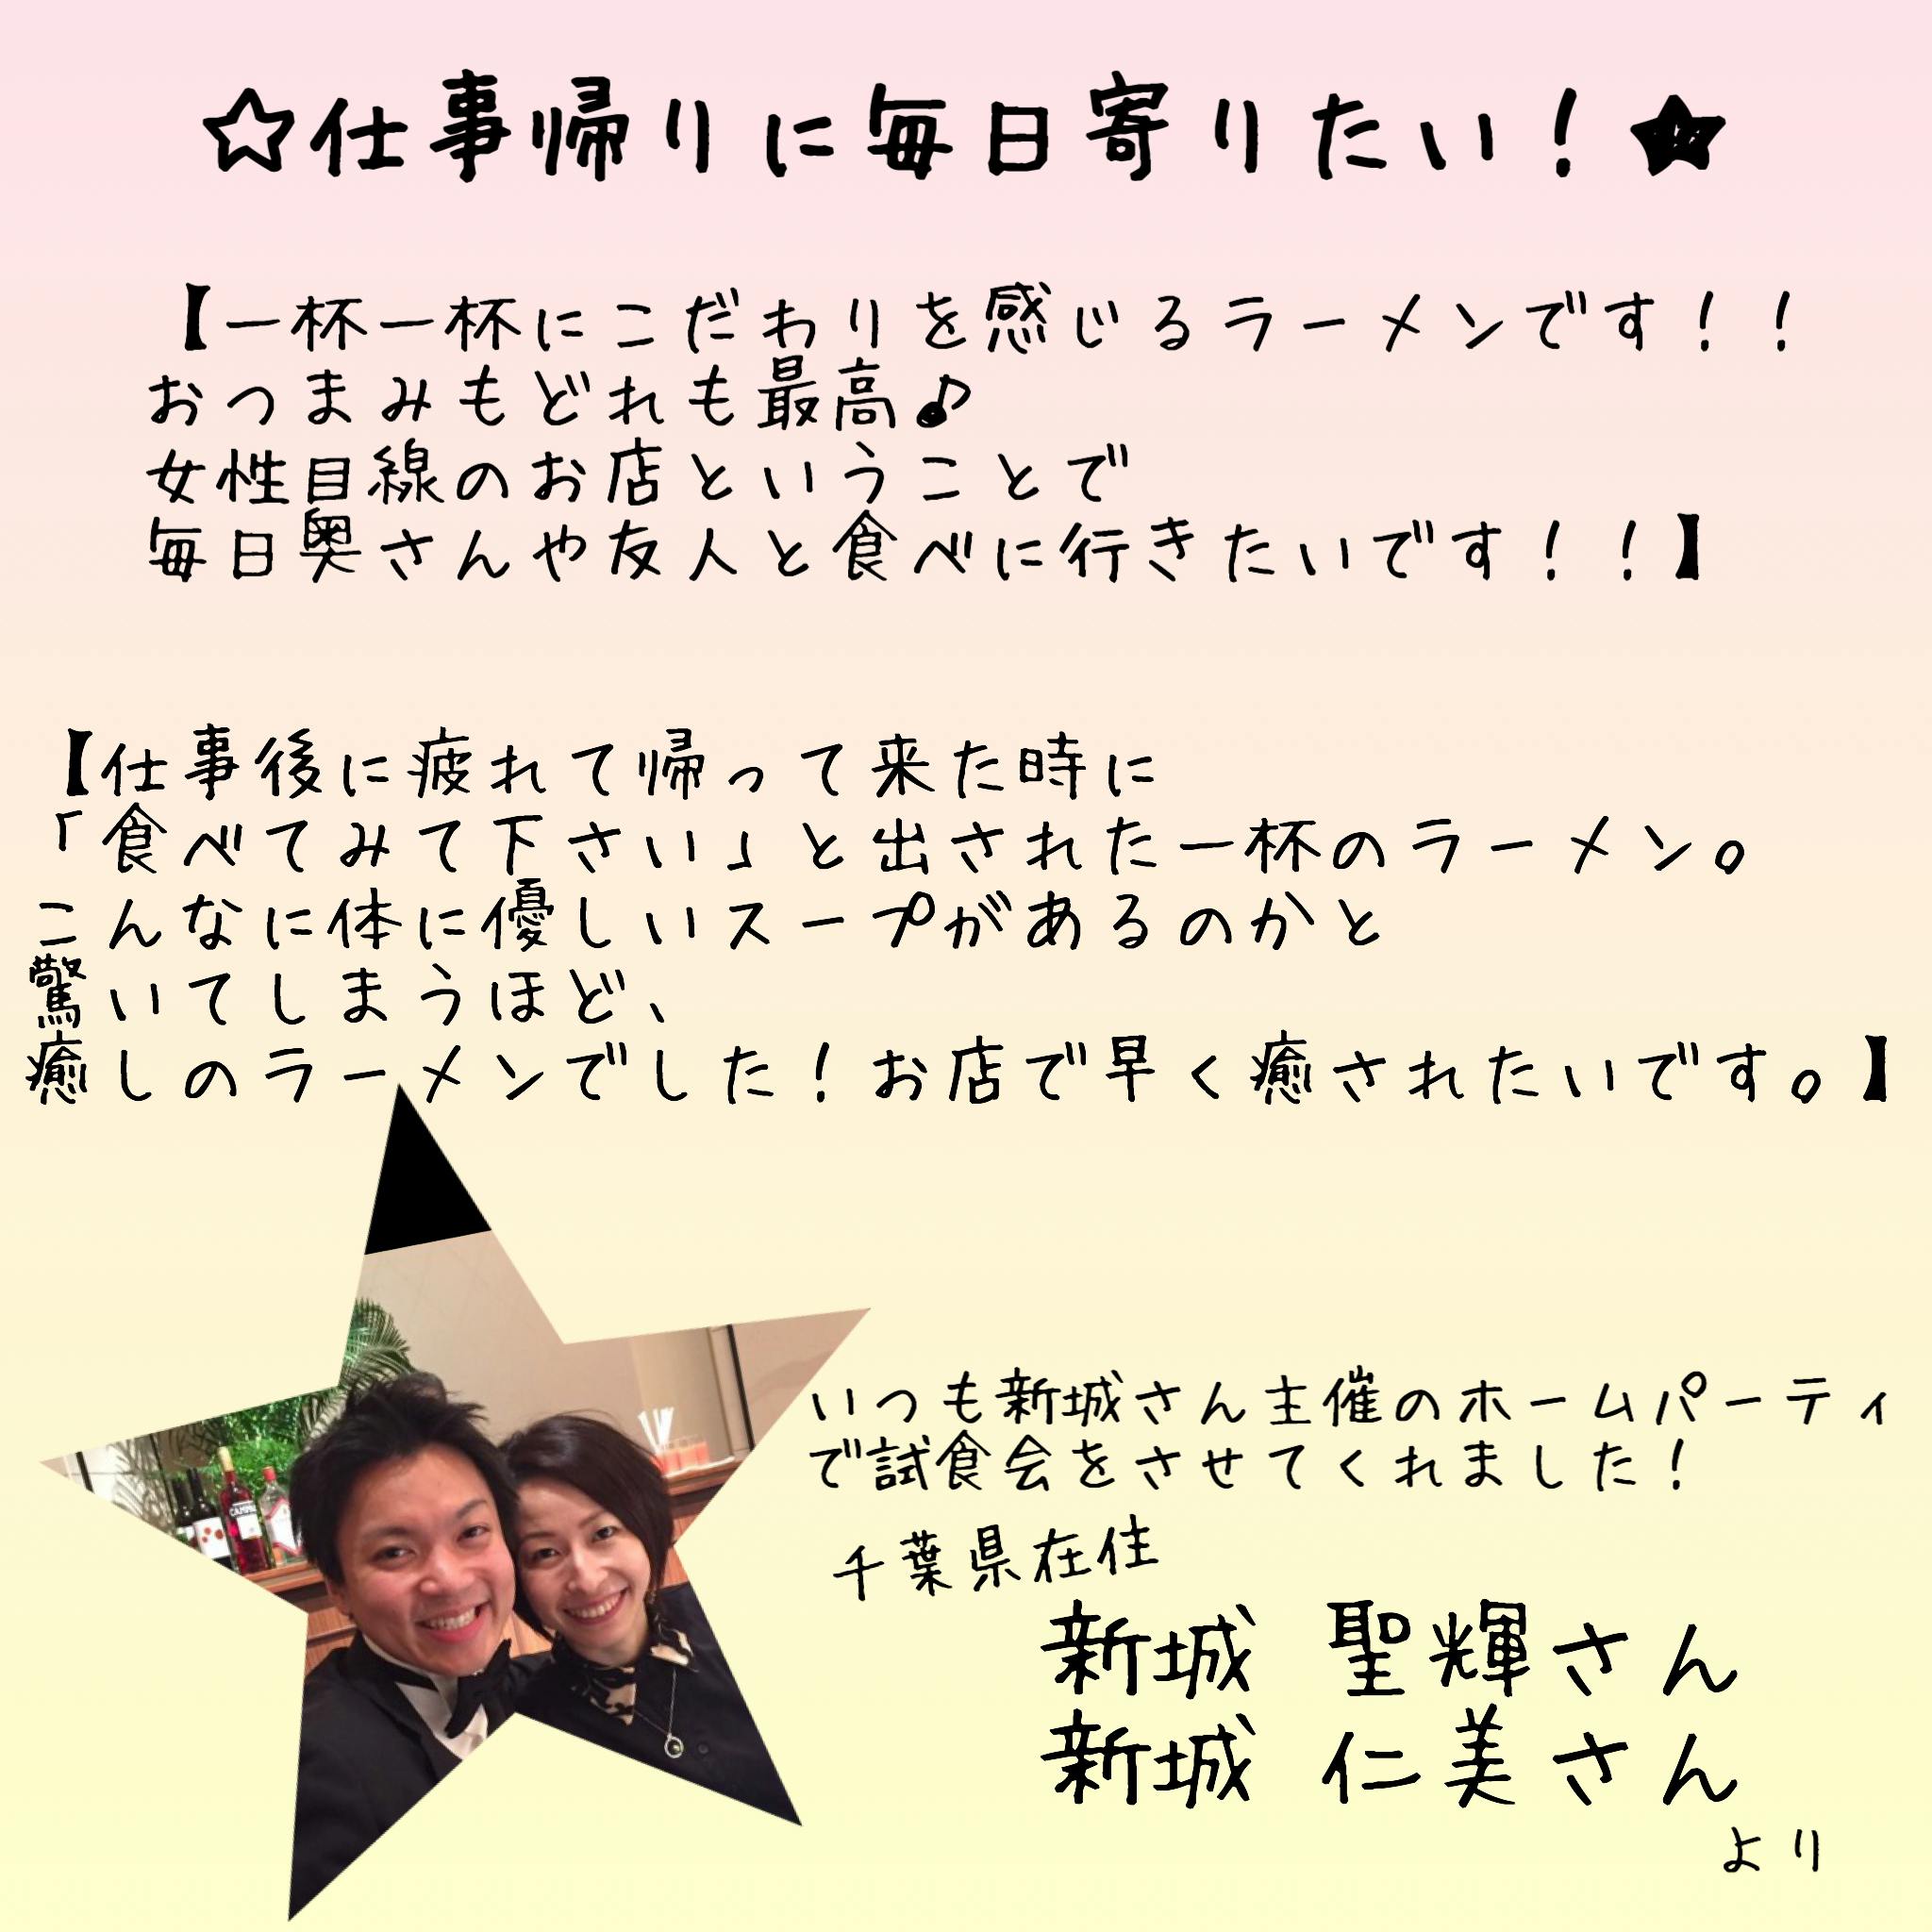 ☆仕事帰りに毎日寄りたい！★
【一杯一杯にこだわりを感じるラーメンです！！
おつまみもどれも最高♪
女性目線のお店ということで
毎日奥さんや友人と食べに行きたいです！！】
【仕事後に疲れて帰って来た時に
「食べてみて下さい」と出された一杯のラーメン。
こんなに体に優しいスープがあるのかと
驚いてしまうほど、
癒しのラーメンでした！お店で早く癒されたいです。】
いつも新城さん主催のホームパーティ
で試食会をさせてくれました！
千葉県在住
新城 聖輝さん
新城 仁美さん
より
CAMPARI